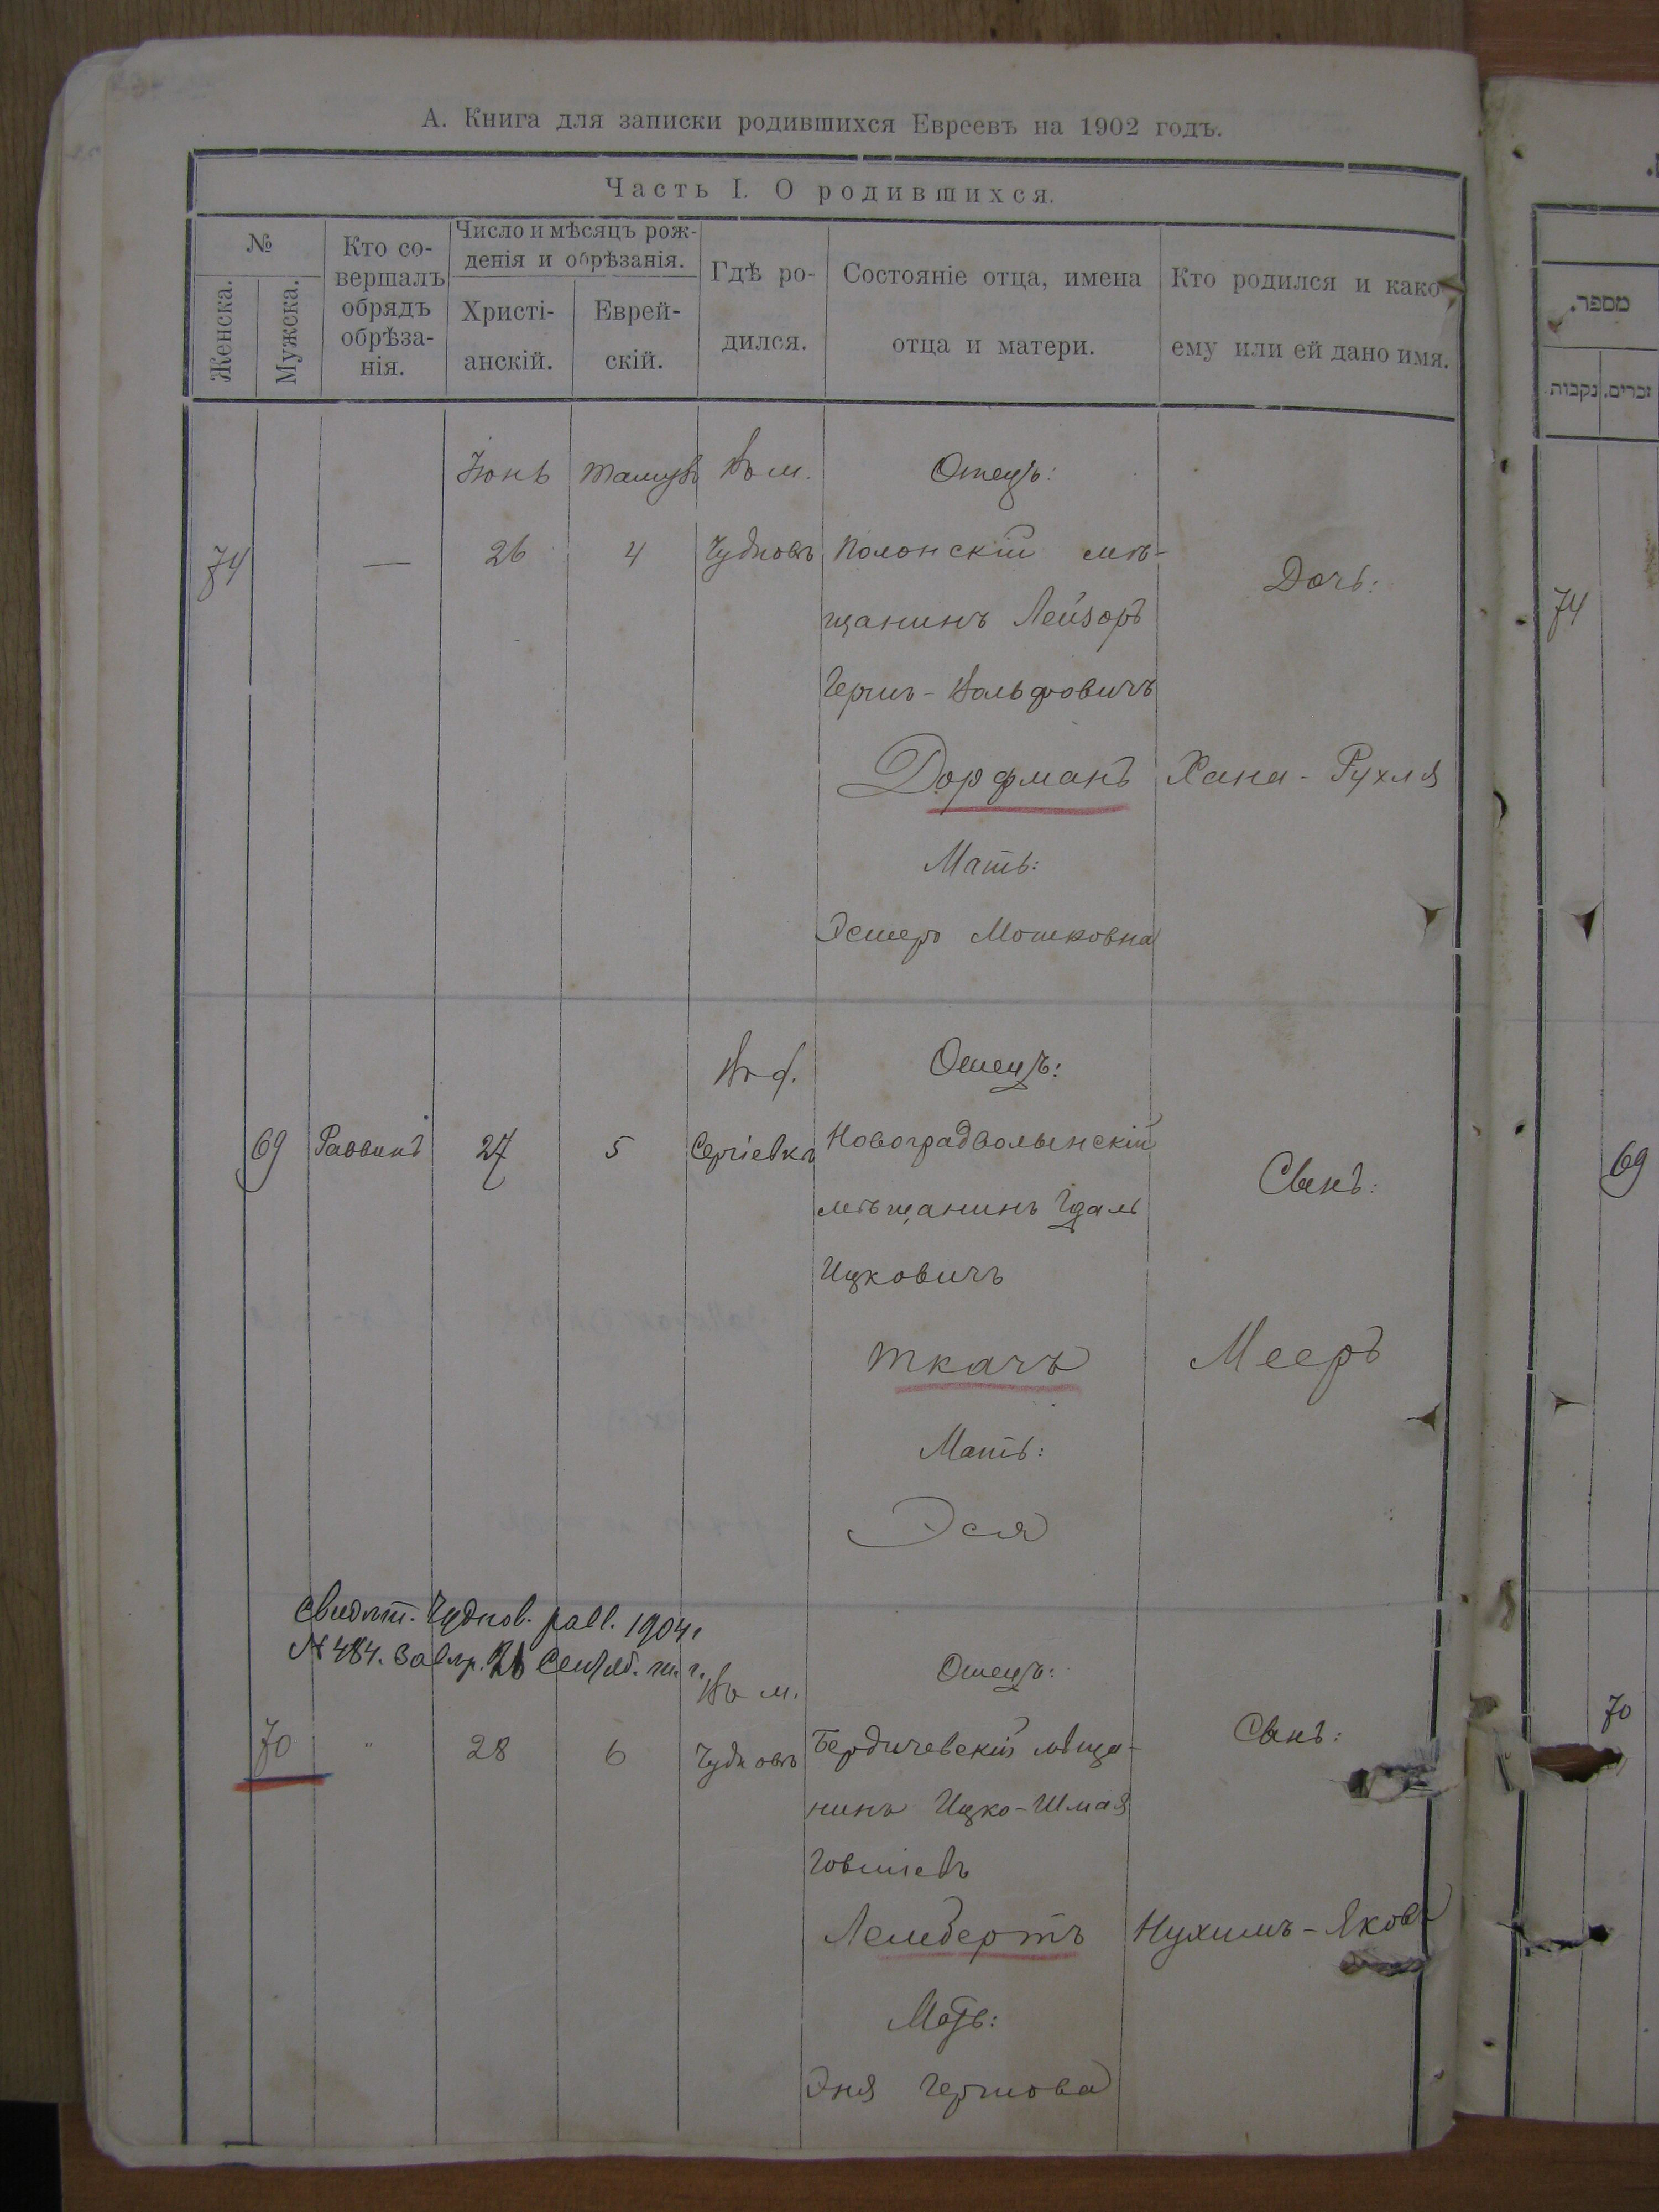 А. Книга для записки родившихся Евреевъ на 1902 годъ.
Часть I. О родившихся.
№
Женска.
Мужска.
Кто со-
вершалъ
обрядъ
обрѣза-
нія.
Число и мѣсяцъ рож-
денія и обрѣзанія.
Христі-
анскій.
Еврей-
скій.
Гдѣ ро-
дился.
Состояніе отца, имена
отца и матери.
Кто родился и како
ему или ей дано имя.
מספר.
זכרים.
נקבות
Іюнь Тамузъ Въ м. Отецъ:
74 — 26 4 Чудновъ Полонскій мѣ-
щанинъ Лейзоръ
Гершъ-Вольфовичъ
Дорфманъ
Мать:
Эстеръ Мошковна
Дочь:
Хана-Рухля
74
Въ с. Отецъ:
69 Раввинъ 27 5 Сергіевка Новоградволынскій
мѣщанинъ Гдаль
Ицковичъ
Ткачъ
Мать:
Эся
Сынъ:
Мееръ
69
Свидѣт. Чуднов. равв. 1904г
№ 484. Завѣр. Сентяб. т. г.
Въ м. Отецъ:
70 " 28 6 Чудновъ Бердичевскій мѣща-
нинъ Ицко-Шмая
Говшіевъ
Лембертъ
Мать:
Эня Гершова
Сынъ:
Нухимъ-Яковъ
70